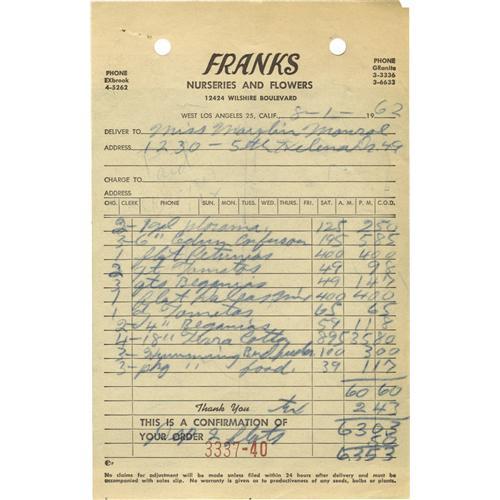 FRANKS
NURSERIES AND FLOWERS
12424 WILSHIRE BOULEVARD
PHONE
EXbrook
4-5262
PHONE
GRanite
3-3336
3-6633
WEST LOS ANGELES 25, CALIF. 8-1- 1962
DELIVER TO Miss Marylin Monroe
ADDRESS 1230-5th Helena Dr 49
CHARGE TO
ADDRESS
CHG. CLERK PHONE SUN. MON. TUES. WED. THURS. FRI. SAT. A.M. P.M. C.O.D.
2- 1 gal 125 250
3- 6" 195 585
1 flat Petunias 400 400
2 qt Tomatos 49 98
3 qts Begonias 49 147
1 flat 400 400
1 Tomatos 65 65
2- 4" Begonias 59 118
4- 18" Terra Cotta 895 3580
3- Hummming Bird feeder 100 300
3- pkg " food. 39 117
60 60
Thank You tx 2 43
THIS IS A CONFIRMATION OF 6303
YOUR ORDER 2 flats 50
3337-40 6353
No claims for adjustment will be made unless filed within 24 hours after delivery and must be
accompanied with sales slip. No warranty is given to productiveness of any seeds, bulbs or plants.